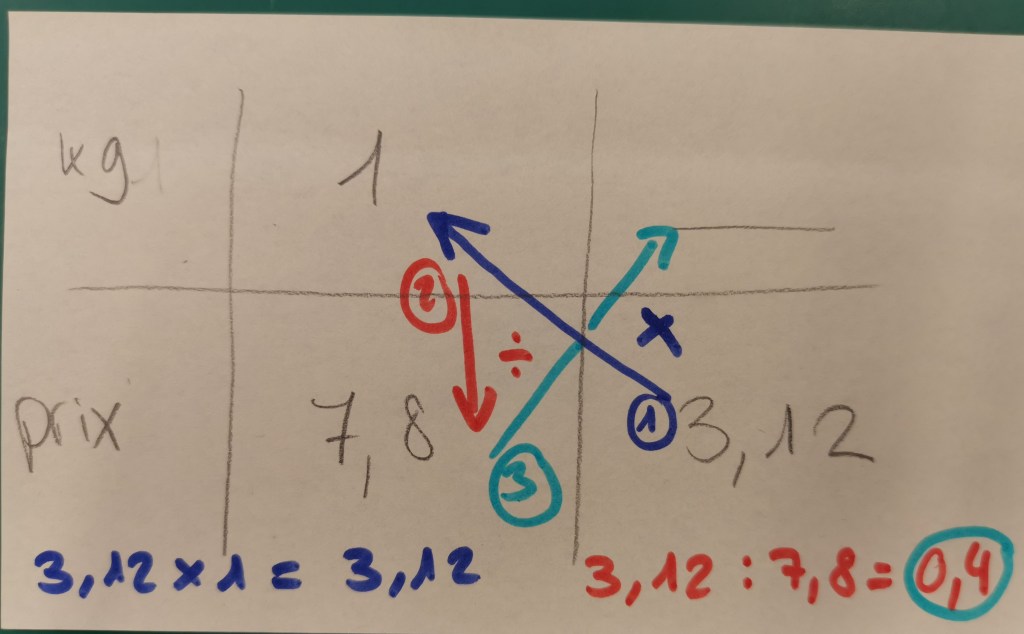 kg 1
2 ÷ x
prix 7,8 1 3,12
3
3,12 x 1 = 3,12 3,12 : 7,8 = 0,4